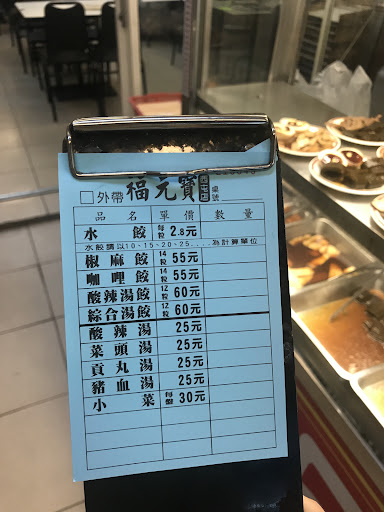 □外帶 福元寶 西屯店 桌號
品名 單價 數量
水餃 每粒2.8元
水餃請以10、15、20、25....為計算單位
椒麻餃 14粒55元
咖哩餃 14粒55元
酸辣湯餃 12粒60元
綜合湯餃 12粒60元
酸辣湯 25元
菜頭湯 25元
貢丸湯 25元
豬血湯 25元
小菜 每盤30元